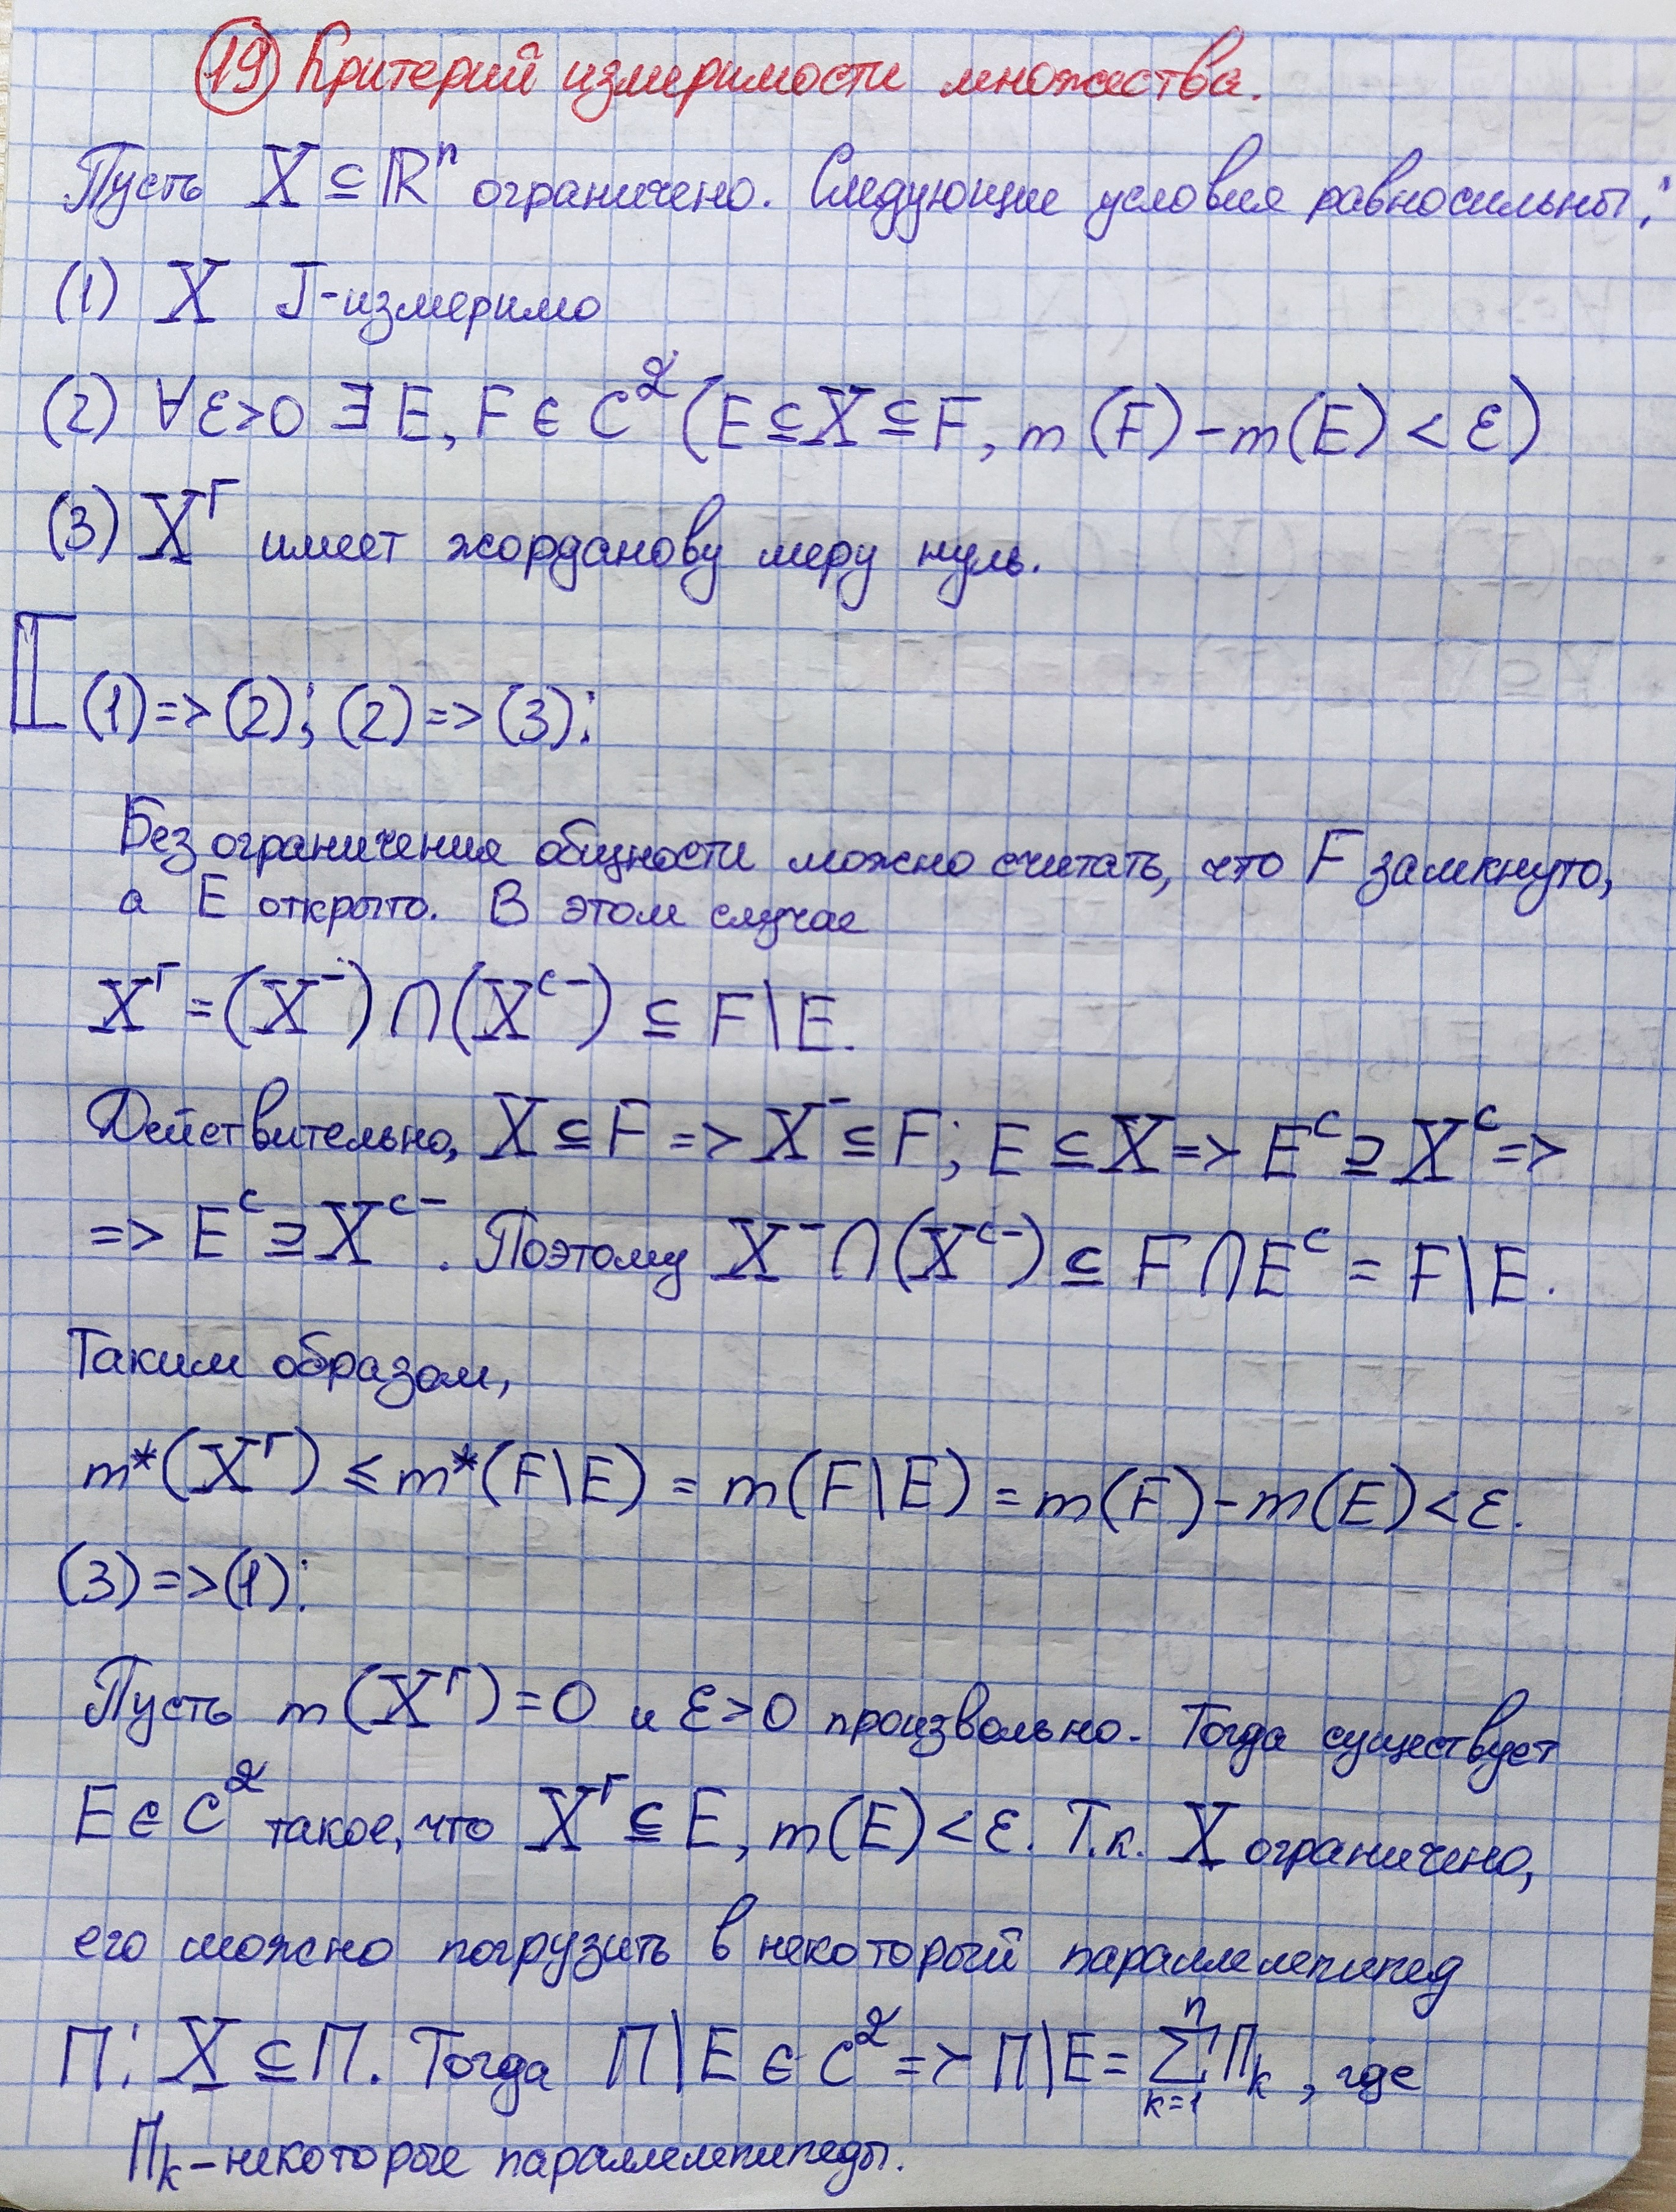 (19) Критерий измеримости множества.
Пусть X ⊆ ℝⁿ ограничено. Следующие условия равносильны:
(1) X J-измеримо
(2) ∀ε>0 ∃ E, F ∈ C² (E ⊆ X ⊆ F, m(F) - m(E) < ε)
(3) X^Г имеет жорданову меру нуль.
[ (1) => (2); (2) => (3):
Без ограничения общности можно считать, что F замкнуто,
а E открыто. В этом случае
X^Г = (X⁻) ∩ (X^{c-}) ⊆ F\E.
Действительно, X ⊆ F => X⁻ ⊆ F; E ⊆ X => E^c ⊇ X^c =>
=> E^c ⊇ X^{c-}. Поэтому X⁻ ∩ (X^{c-}) ⊆ F ∩ E^c = F\E.
Таким образом,
m*(X^Г) ≤ m*(F\E) = m(F\E) = m(F) - m(E) < ε.
(3) => (1):
Пусть m(X^Г) = 0 и ε>0 произвольно. Тогда существует
E ∈ C² такое, что X^Г ⊆ E, m(E) < ε. Т.к. X ограничено,
его можно погрузить в некоторый параллелепипед
П: X ⊆ П. Тогда П\E ∈ C² => П\E = ∑_{k=1}^{n} П_k, где
П_k - некоторые параллелепипеды.